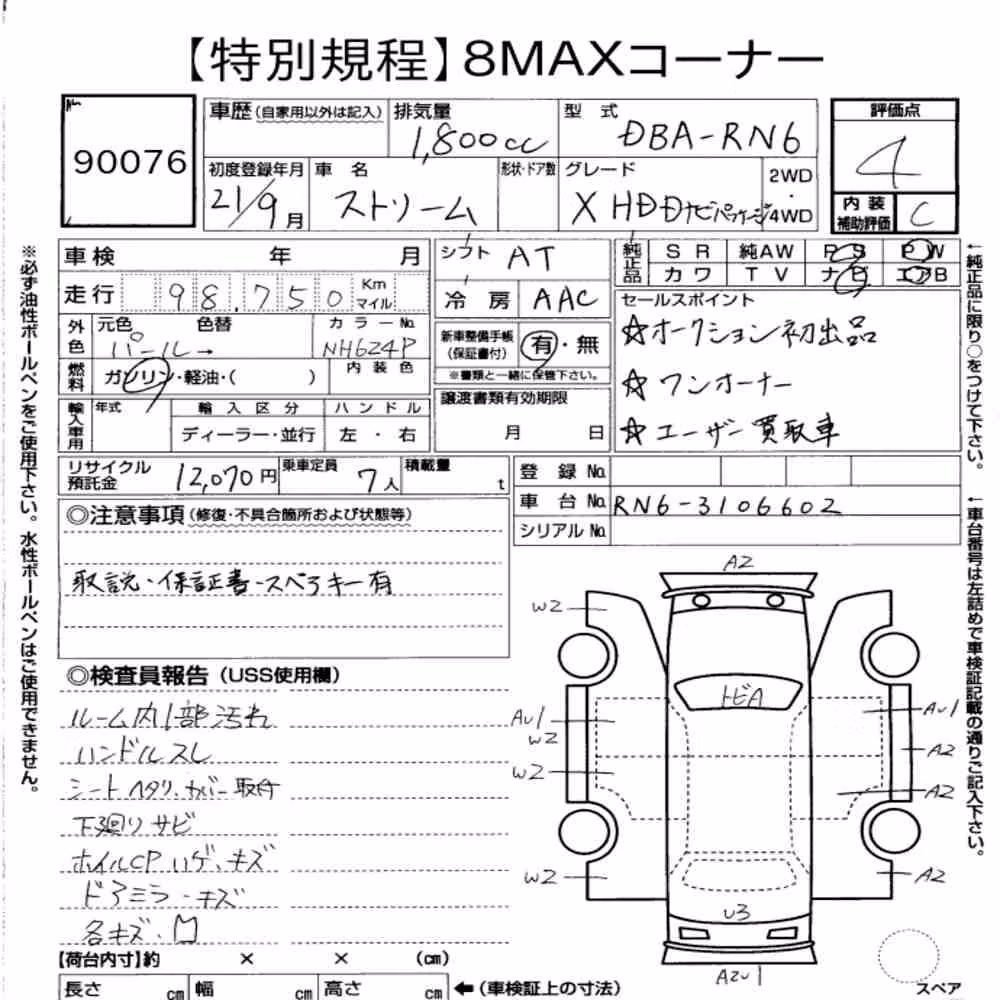 【特別規程】8MAXコーナー
90076
車歴(自家用以外は記入)
排気量
1,800cc
型 式
DBA-RN6
評価点
4
初度登録年月
21/9月
車 名
ストリーム
形状・ドア数
グレード
X HDDナビパッケージ
2WD
・
4WD
内 装
補助評価
C
車検 年 月
シフト AT
純正品
S R 純AW P S P W
カ ワ T V ナ ビ エアB
走行 98,750 Km マイル
冷 房 AAC
セールスポイント
外色
元色 色替
パール→
カラーNo.
NH624P
新車整備手帳
(保証書付)
有・無
※書類と一緒に保管下さい。
☆オークション初出品
燃料
ガソリン・軽油・( )
内 装 色
☆ワンオーナー
輸入車用
年式
輸 入 区 分
ハ ン ド ル
ディーラー・並行
左 ・右
譲渡書類有効期限
月 日
☆ユーザー買取車
リサイクル
預託金
12,070円
乗車定員
7人
積載量
t
登 録 No.
車 台 No. RN6-3106602
シリアル No.
◎注意事項(修復・不具合箇所および状態等)
取説・保証書・スペアキー有
◎検査員報告(USS使用欄)
ルーム内1部汚れ
ハンドルスレ
シートヘタリ、カバー取付
下廻りサビ
ホイルCPハゲ、キズ
ドアミラーキズ
各キズ・凹
A2
W2
トビA
AU1
W2
W2
W2
AU1
A2
A2
A2
U3
A2U1
【荷台内寸】約 × × (cm)
長さ cm 幅 cm 高さ cm
←(車検証上の寸法)
スペア
※必ず油性ボールペンをご使用下さい。水性ボールペンはご使用できません。
←純正品に限り○をつけて下さい。
←車台番号は左詰めで車検証記載の通りご記入下さい。